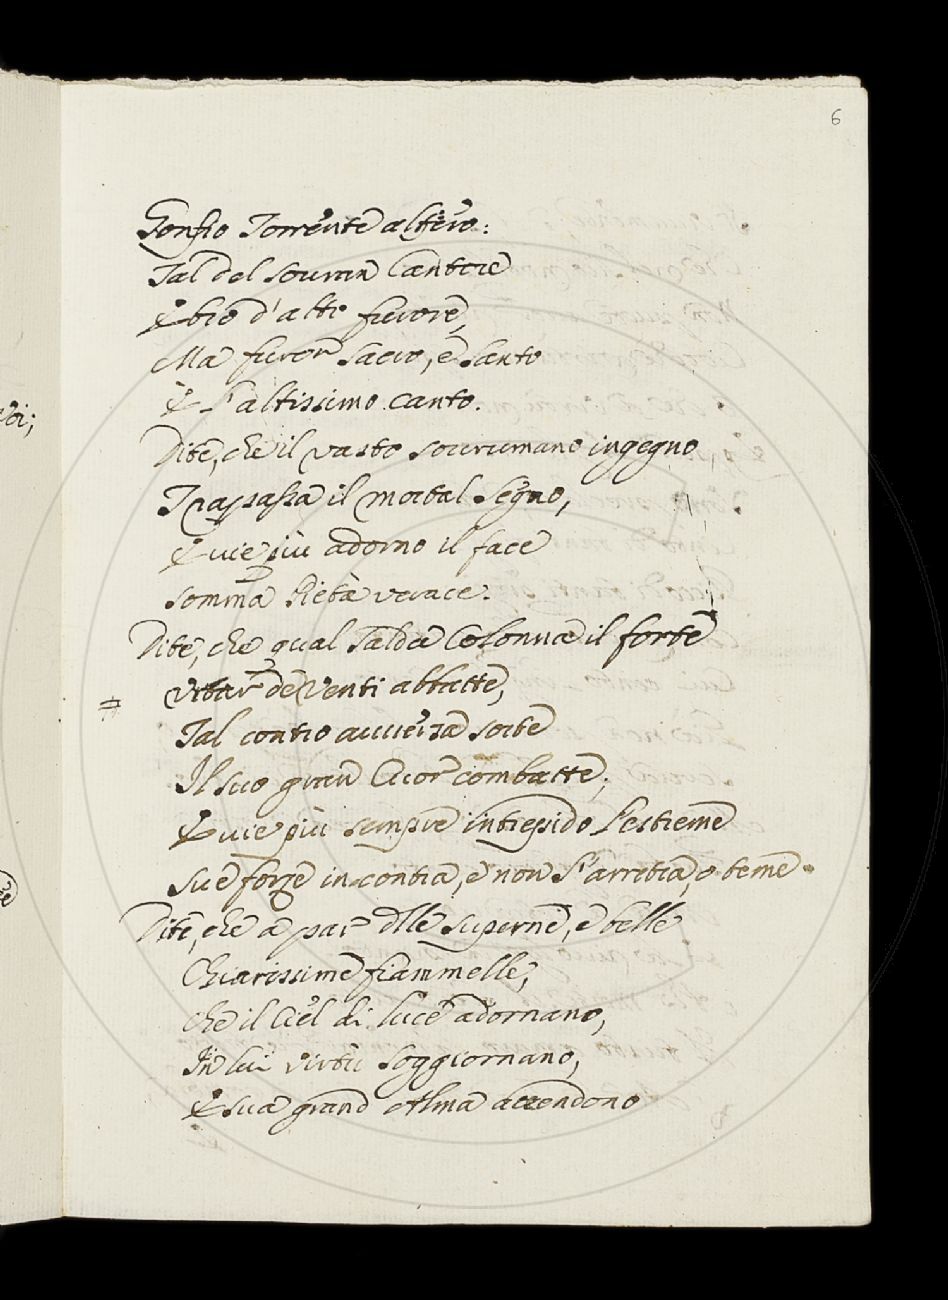 6
Gonfio Torrente altero:
Tal del souran Cantore
Ebro d'alto furore,
Ma furor sacro, e santo
È l'altissimo canto.
Dite, che il vasto sourumano ingegno,
Trapassa il mortal segno,
E vie più adorno il face
Somma Pietà verace.
Dite, che qual salda Colonna il forte
Vrtar de Venti abbatte,
#
Tal contro auuersa sorte
Il suo gran Cuor combatte;
E vie più sempre intrepido l'estreme
Sue forze incontra, e non s'arretra, o teme.
Dite, che a par delle superne, e belle
Chiarissime fiammelle,
Che il Ciel di luce adornano,
In lui virtù soggiornano,
E sua grand Alma accendono
Voi;